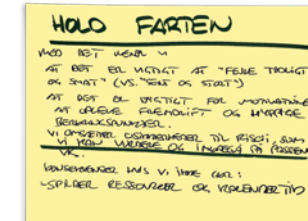 HOLD FARTEN
MED DET MENER VI
AT DET ER VIGTIGT AT "FEJLE TIDLIGT
OG SMÅT" (VS. "SENT OG STORT")
AT DET ER VIGTIGT FOR MOTIVATIONEN
AT OPLEVE FREMDRIFT OG HYPPIGE
VI OMSÆTTER USIKKERHEDER TIL RISICI, SOM
VI KAN VURDERE OG
KONSEKVENSER HVIS VI IKKE GØR:
-SPILDER RESSOURCER OG KALENDERTID